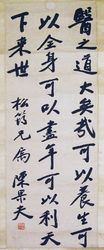 醫之道大矣哉可以養生可
以全身可以盡年可以利天
下來世
松筠兄屬 陳果夫